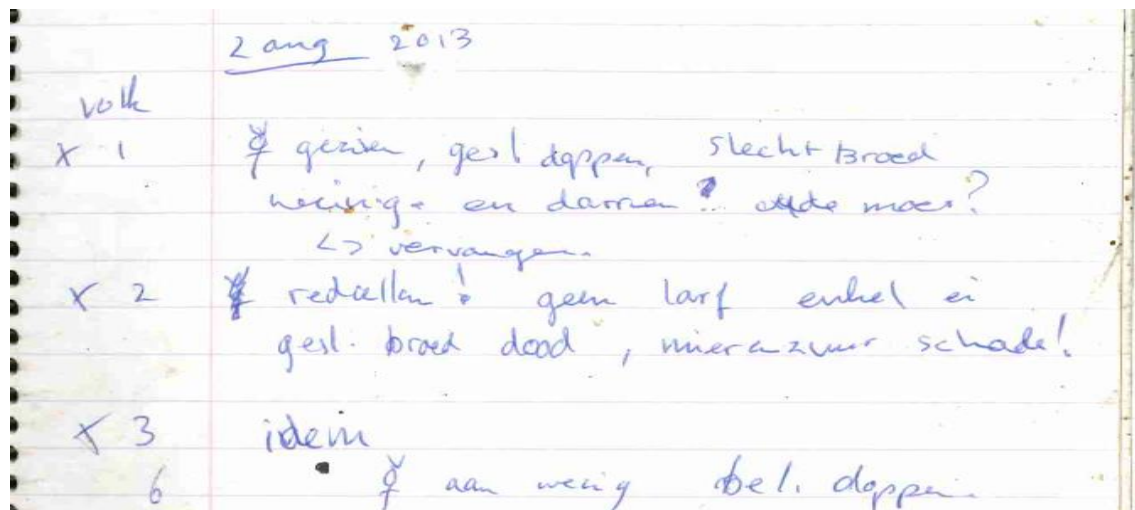 2 aug 2013
volk
x 1 gezien, gesl doppen, slecht Broed
weinig en darren? oude moer?
<-> vervangen.
x 2 redcellen! geen larf enkel ei
gesl. broed dood, mierenzuur schade!
x 3 idem
6 aan weinig bel. doppen.